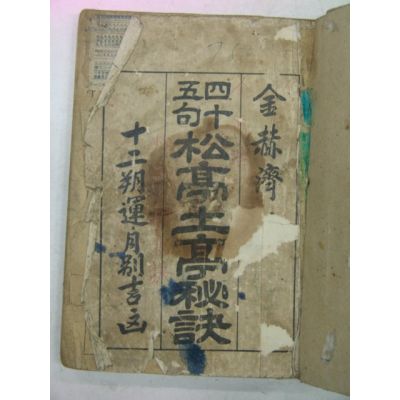 金赫濟
四十五句松亭土亭秘訣
十二朔運月別吉凶